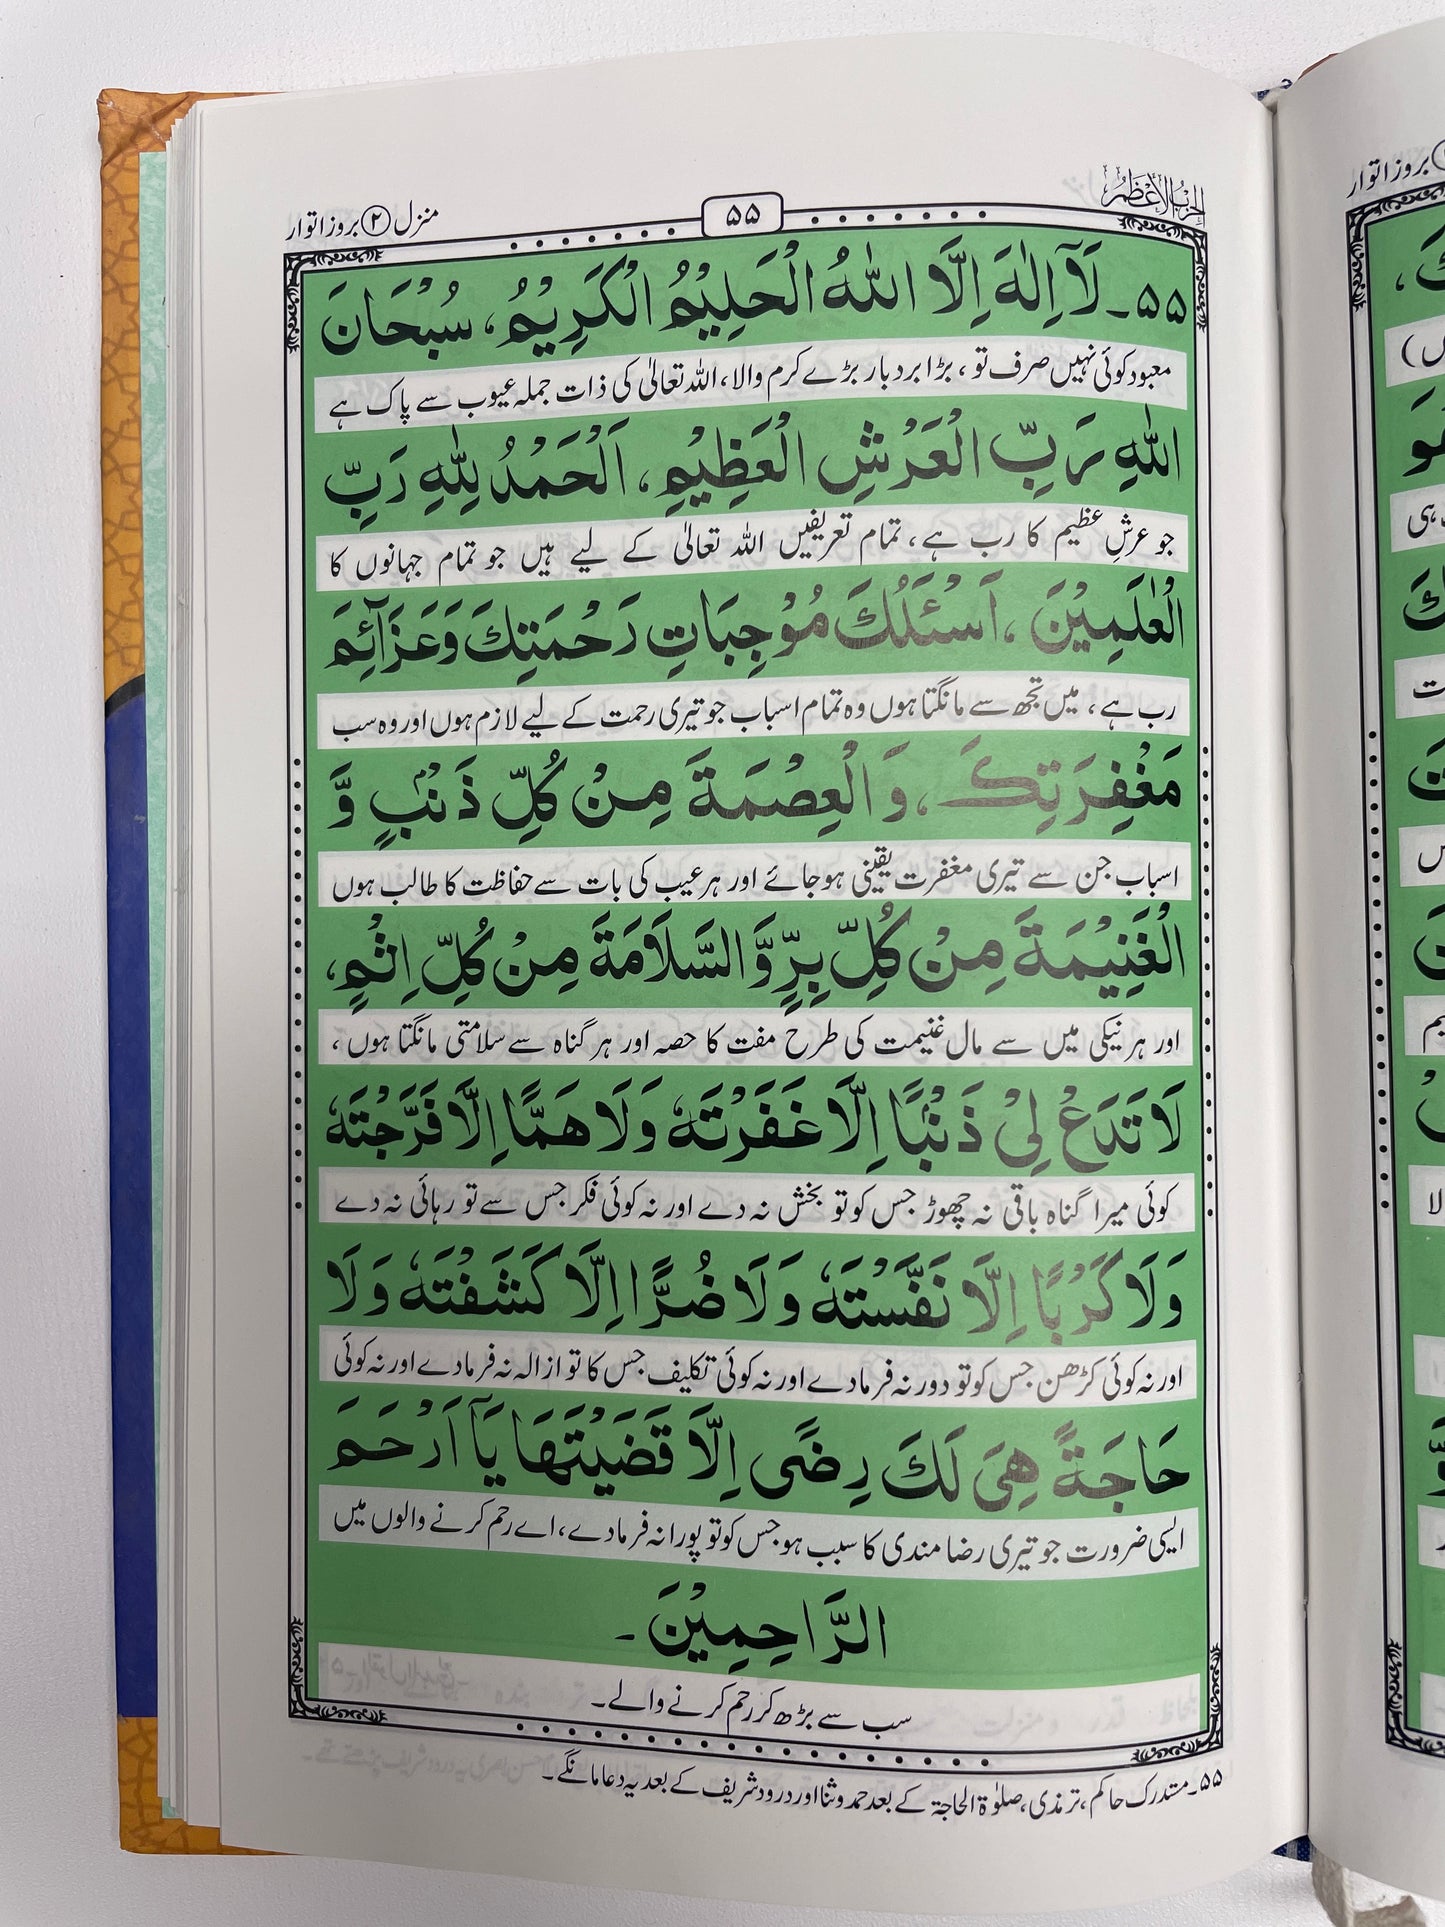 الحزب الاعظم
۵۵
منزل ② بروز اتوار
۵۵۔ لَآ اِلٰهَ اِلَّا اللّٰهُ الْحَلِيْمُ الْكَرِيْمُ، سُبْحَانَ
معبود کوئی نہیں صرف تو، بڑا بردبار بڑے کرم والا، اللہ تعالیٰ کی ذات جملہ عیوب سے پاک ہے
اللّٰهِ رَبِّ الْعَرْشِ الْعَظِيْمِ، اَلْحَمْدُ لِلّٰهِ رَبِّ
جو عرشِ عظیم کا رب ہے، تمام تعریفیں اللہ تعالیٰ کے لیے ہیں جو تمام جہانوں کا
الْعٰلَمِيْنَ، اَسْئَلُكَ مُوْجِبَاتِ رَحْمَتِكَ وَعَزَآئِمَ
رب ہے، میں تجھ سے مانگتا ہوں وہ تمام اسباب جو تیری رحمت کے لیے لازم ہوں اور وہ سب
مَغْفِرَتِكَ، وَالْعِصْمَةَ مِنْ كُلِّ ذَنْۢبٍ وَّ
اسباب جن سے تیری مغفرت یقینی ہو جائے اور ہر عیب کی بات سے حفاظت کا طالب ہوں
الْغَنِيْمَةَ مِنْ كُلِّ بِرٍّ وَّالسَّلَامَةَ مِنْ كُلِّ اِثْمٍ،
اور ہر نیکی میں سے مال غنیمت کی طرح مفت کا حصہ اور ہر گناہ سے سلامتی مانگتا ہوں،
لَا تَدَعْ لِىْ ذَنْۢبًا اِلَّا غَفَرْتَهٗ وَلَا هَمًّا اِلَّا فَرَّجْتَهٗ
کوئی میرا گناہ باقی نہ چھوڑ جس کو تو بخش نہ دے اور نہ کوئی فکر جس سے تو رہائی نہ دے
وَلَا كَرْبًا اِلَّا نَفَّسْتَهٗ وَلَا ضُرًّا اِلَّا كَشَفْتَهٗ وَلَا
اور نہ کوئی کڑھن جس کو تو دور نہ فرما دے اور نہ کوئی تکلیف جس کا تو ازالہ نہ فرما دے اور نہ کوئی
حَاجَةً هِىَ لَكَ رِضًى اِلَّا قَضَيْتَهَا يَآ اَرْحَمَ
ایسی ضرورت جو تیری رضا مندی کا سبب ہو جس کو تو پورا نہ فرما دے، اے رحم کرنے والوں میں
الرَّاحِمِيْنَ۔
سب سے بڑھ کر رحم کرنے والے۔
۵۵۔ مستدرک حاکم، ترمذی، صلوٰۃ الحاجۃ کے بعد حمد و ثنا اور درود شریف کے بعد یہ دعا مانگے۔
بروز اتوار